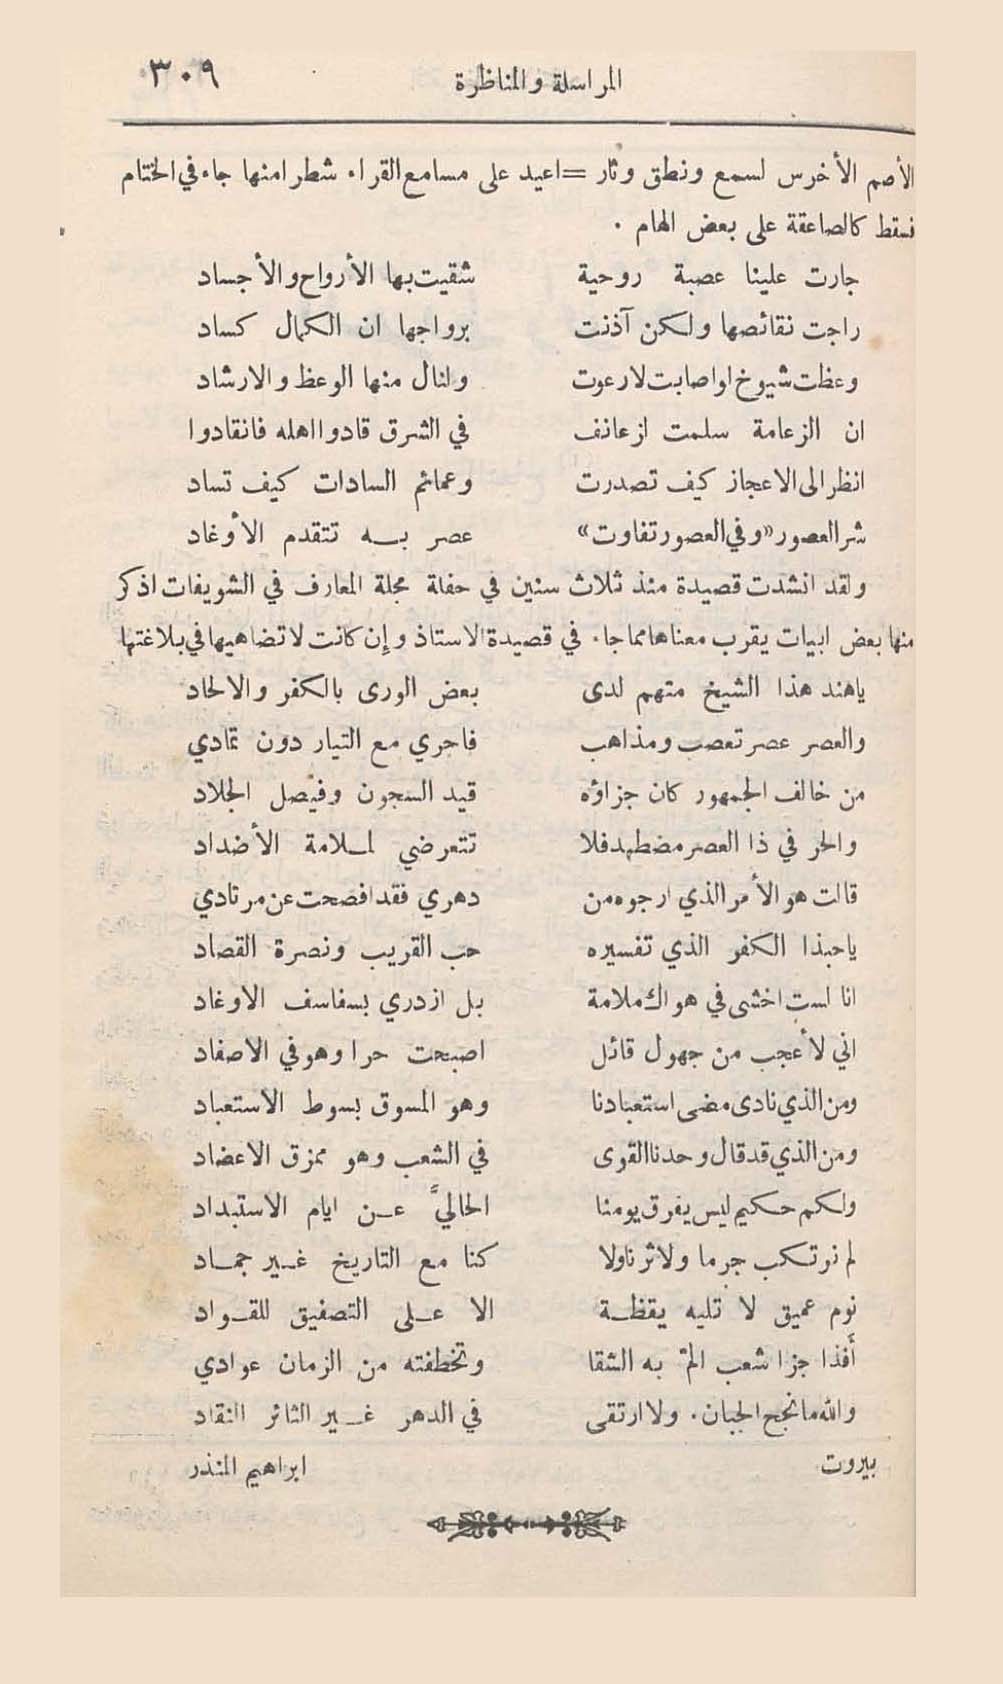 المراسلة والمناظرة ٣٠٩
الأصم الأخرس لسمع ونطق وثار =اعيد على مسامع القراء شطرا منها جاء في الختام
فسقط كالصاعقة على بعض الهام .
جارت علينا عصبة روحية شقيت بها الأرواح والأجساد
راجت نقائصها ولكن آذنت برواجها ان الكمال كساد
وعظت شيوخ لو اصابت لارعوت ولنال منها الوعظ والارشاد
ان الزعامة سلمت لزعانف في الشرق قادوا اهله فانقادوا
انظر الى الاعجاز كيف تصدرت وعمائم السادات كيف تساد
شر العصور «وفي العصور تفاوت» عصر بـه تتقدم الأوغاد
ولقد انشدت قصيدة منذ ثلاث سنين في حفلة مجلة المعارف في الشويفات اذكر
منها بعض ابيات يقرب معناها مما جاء في قصيدة الاستاذ وإن كانت لا تضاهيها في بلاغتها
ياهند هذا الشيخ متهم لدى بعض الورى بالكفر والالحاد
والعصر عصر تعصب ومذاهب فاجري مع التيار دون تمادي
من خالف الجمهور كان جزاؤه قيد السجون وفيصل الجلاد
والحر في ذا العصر مضطهد فلا تتعرضي لملامة الأضداد
قالت هو الأمر الذي ارجوه من دهري فقد افصحت عن مرتادي
ياحبذا الكفر الذي تفسيره حب القريب ونصرة القصاد
انا لست اخشى في هواك ملامة بل ازدري بسفاسف الاوغاد
اني لأعجب من جهول قائل اصبحت حرا وهو في الاصفاد
ومن الذي نادى مضى استعبادنا وهو المسوق بسوط الاستعباد
ومن الذي قد قال وحدنا القوى في الشعب وهو ممزق الاعضاد
ولكم حكيم ليس يفرق يومنا الحاليَّ عـن ايام الاستبداد
لم نرتكب جرما ولا ثرنا ولا كنا مع التاريخ غـير جمـاد
نوم عميق لا تليه يقظـة الا عـلى التصفيق للقـواد
أَفذا جزا شعب المّ به الشقا وتخطفته من الزمان عوادي
والله ما نجح الجبان . ولا ارتقى في الدهر غـير الثائر النقاد
بيروت ابراهيم المنذر